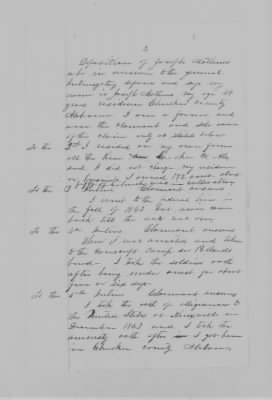 2
Deposition of Joseph
who in answer to the general
interrogatory deposes and says my
name is Joseph my age 49
years residence Cherokee County
Alabama I am a farmer and
am the claimant and sole owner
of the claim only as stated below
To the 2nd I resided on my own farm
all the time
and I did not change my residence
or business. I owned 192 acres about
was in cultivation
To the 3 Claimant answers
I went to the federal lines in
the fall of 1863 and never came
back till the war was over
To the 4th Claimant answers
When I was arrested and taken
to the conscript camp in
I took the soldiers oath
after being under arrest for about
five or six days
To the 5th Claimant answers
I took the oath of allegiance to
the United States at
December 1863 and I took the
amnesty oath after I got home
in Cherokee county Alabama